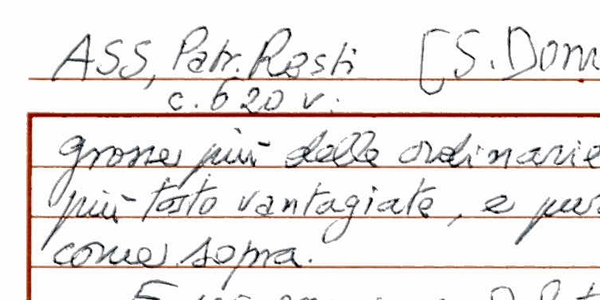 ASS, Patr. Resti [S. Dom
c. 620 v.
grosse più delle ordinarie
più tosto vantagiate, e
come sopra.